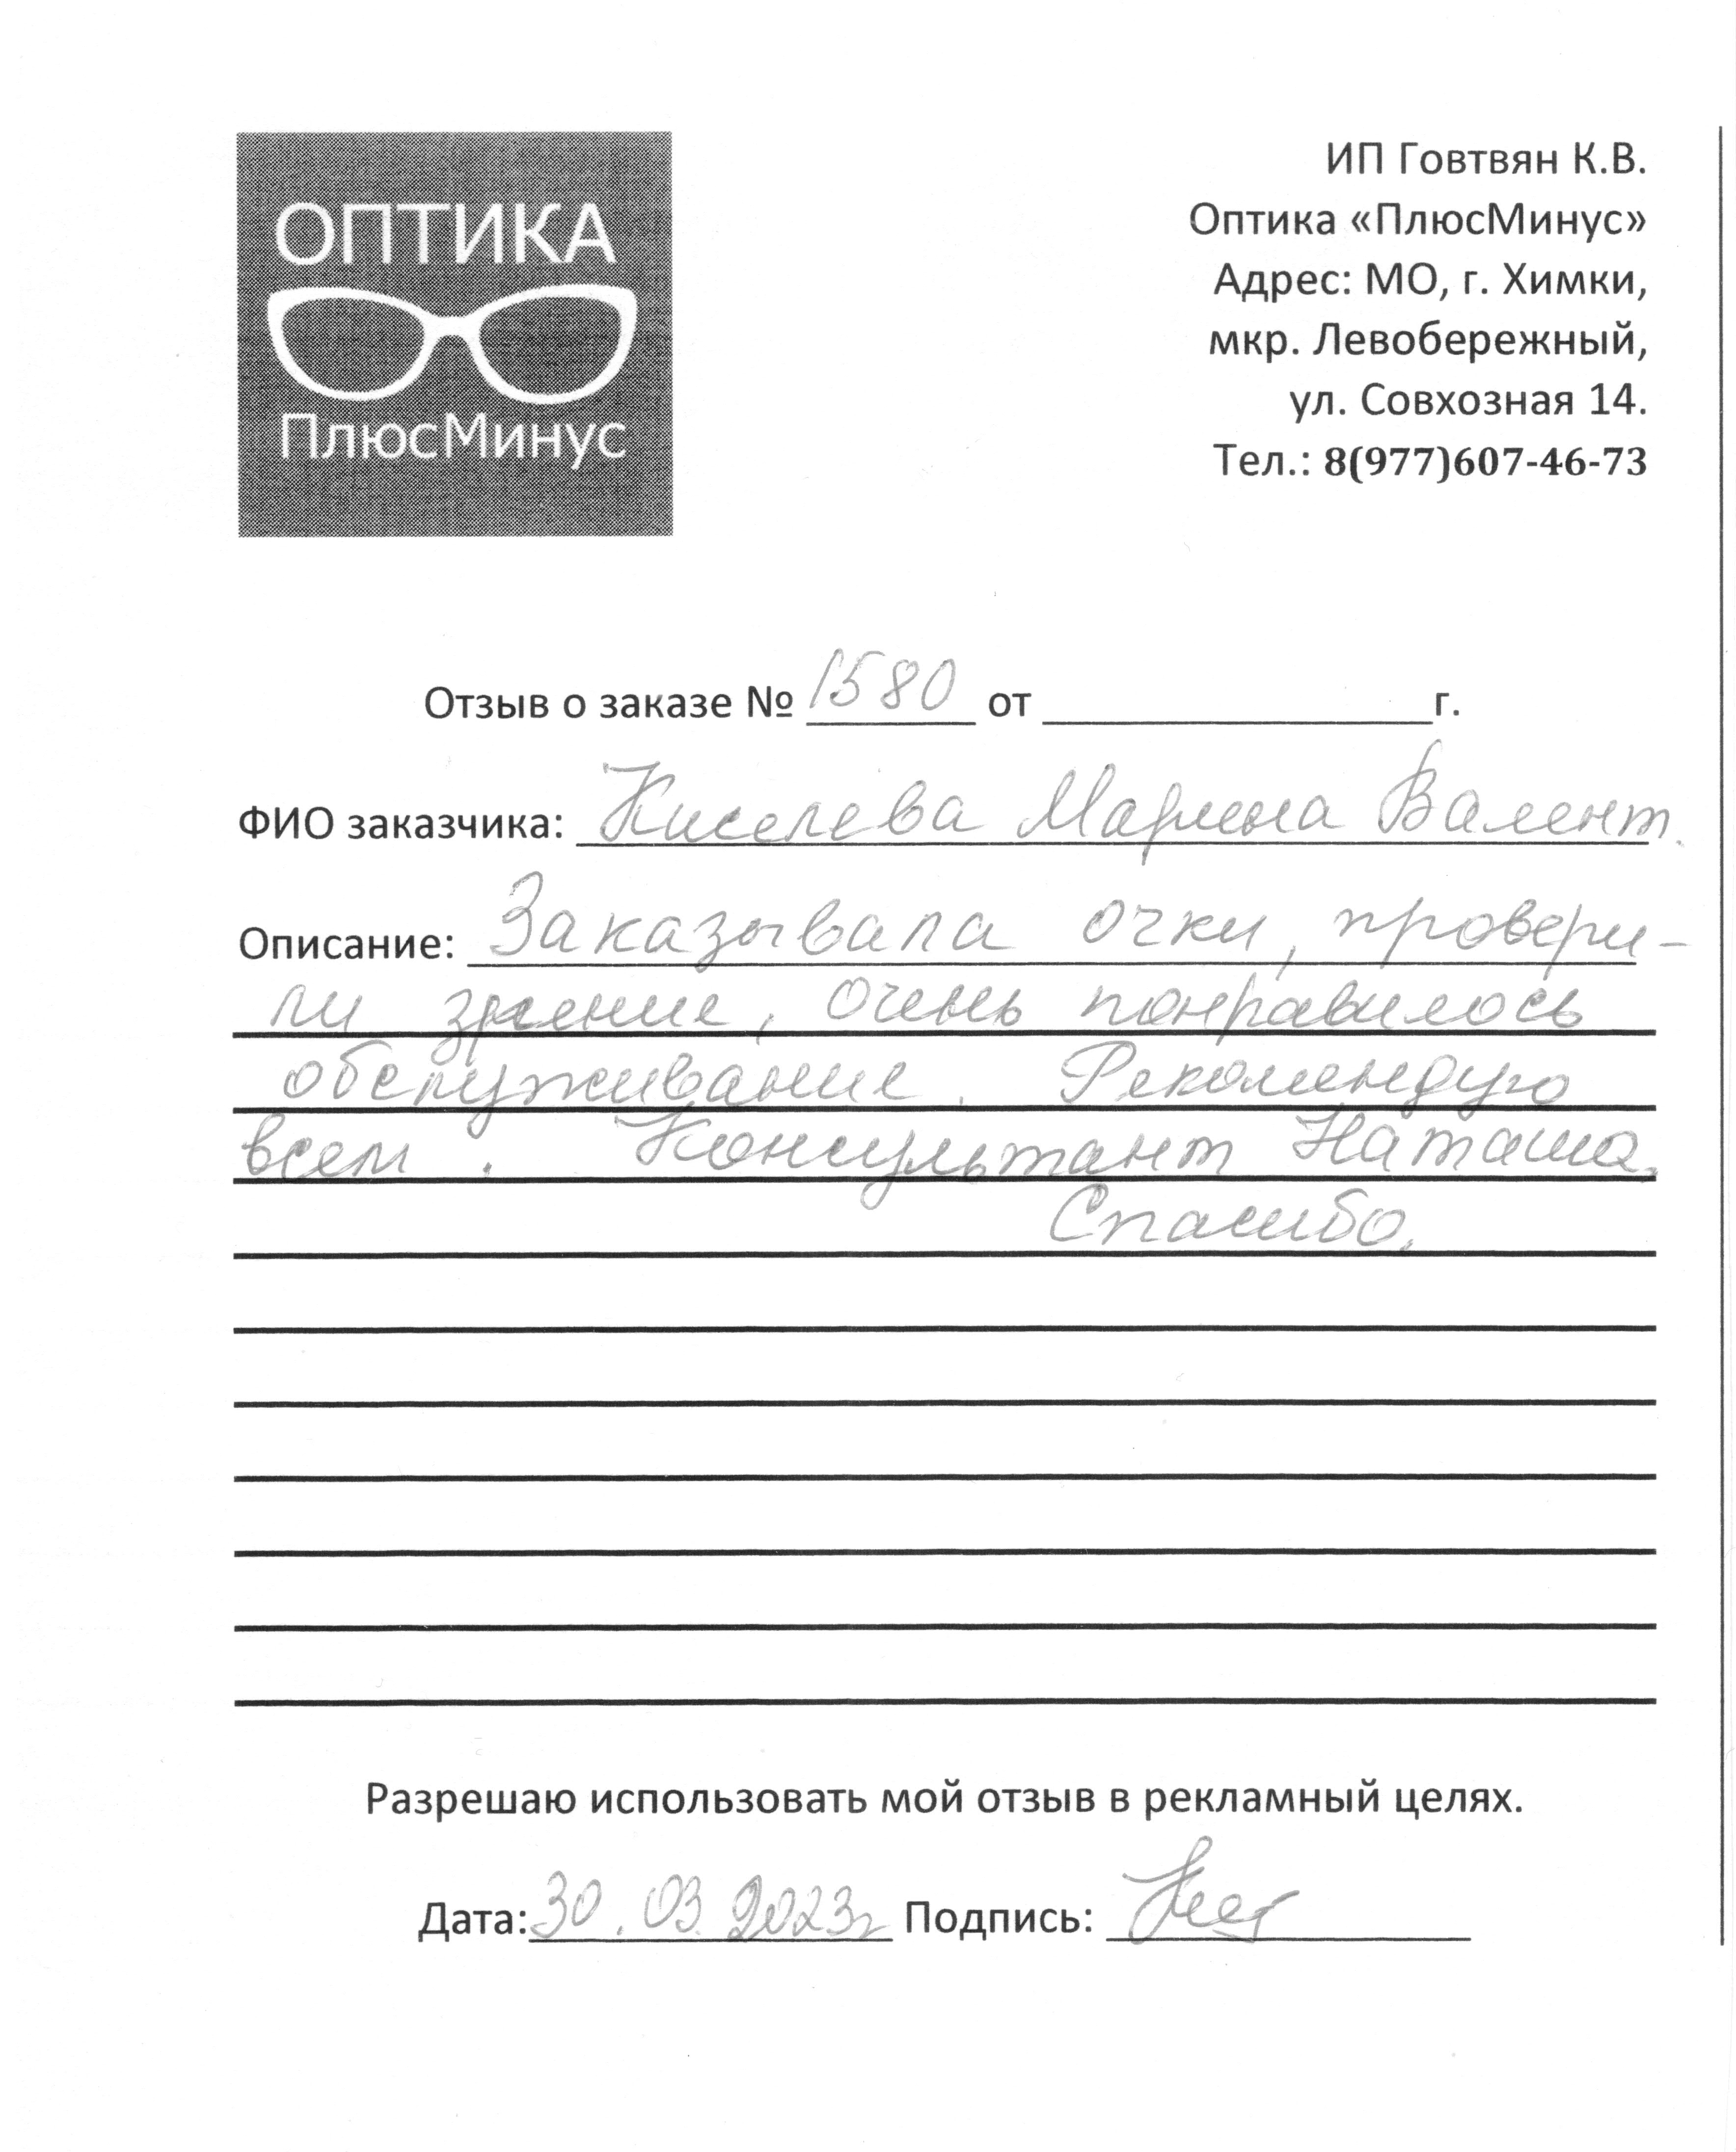 ОПТИКА
ПлюсМинус
ИП Говтвян К.В.
Оптика «ПлюсМинус»
Адрес: МО, г. Химки,
мкр. Левобережный,
ул. Совхозная 14.
Тел.: 8(977)607-46-73
Отзыв о заказе № 1580 от г.
ФИО заказчика: Киселева Марина Валент.
Описание: Заказывала очки, провери-
ли зрение, очень понравилось
обслуживание. Рекомендую
всем. Консультант Наташа.
Спасибо.
Разрешаю использовать мой отзыв в рекламный целях.
Дата: 30.03.2023г Подпись: